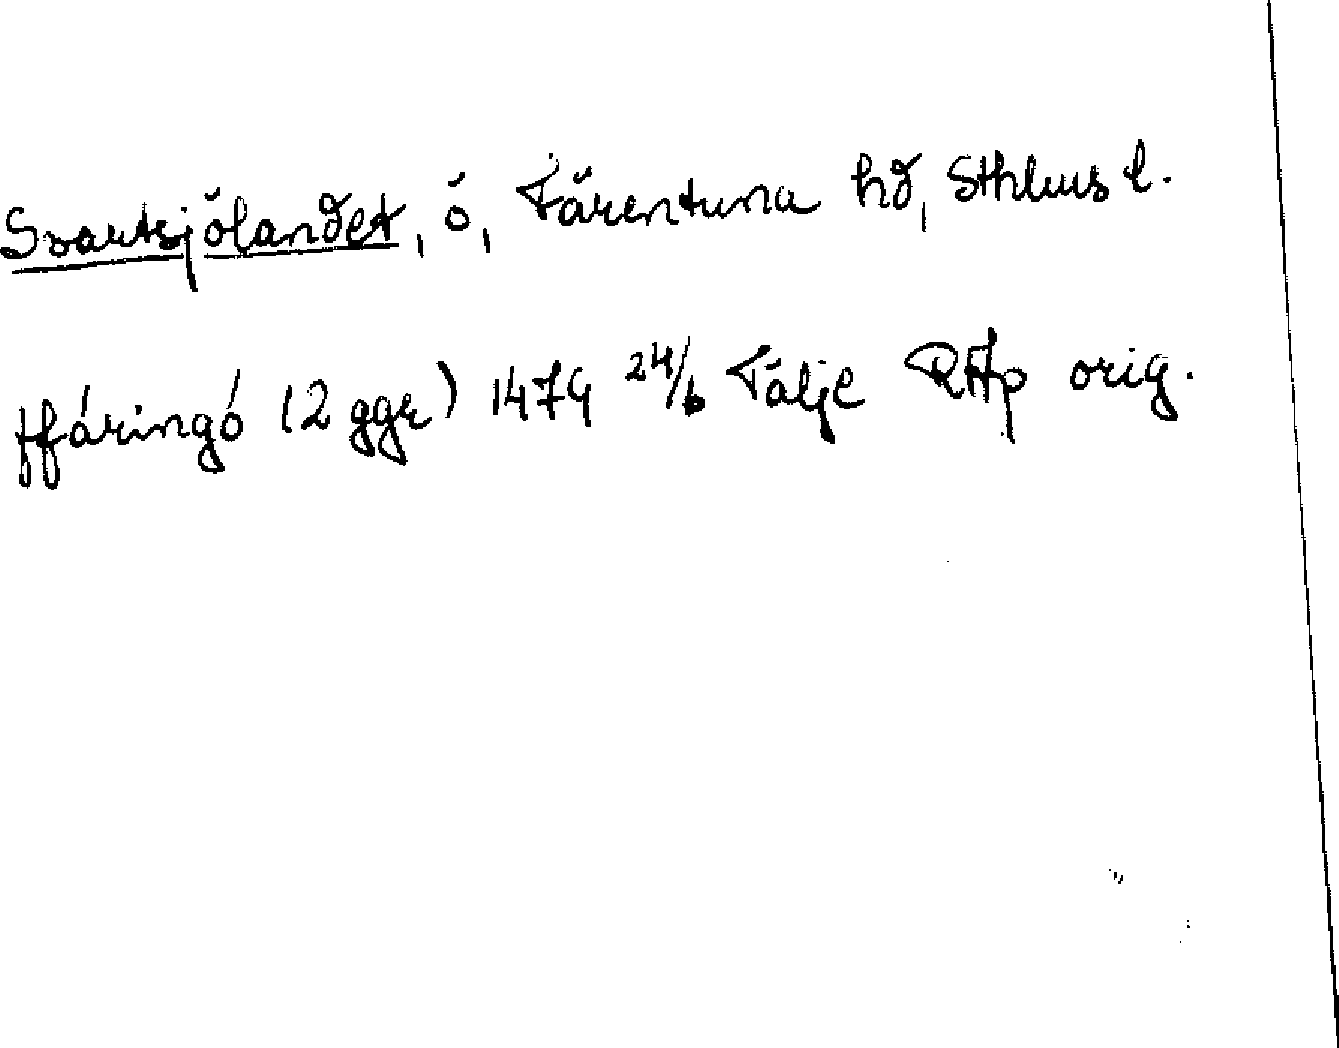 Svartsjölandet, ö, Färentuna hd, Sthlms l.
ffäringö (2 ggr) 1474 24/6 Tälje RAp orig.